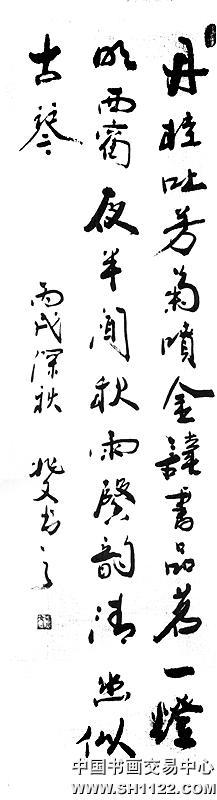 丹桂吐芳菊噴金讀書品茗一燈
明西窗夜半聞秋雨聲韻清悠似
古琴
丙戌深秋 兆文书之
中国书画交易中心
www.SH1122.com